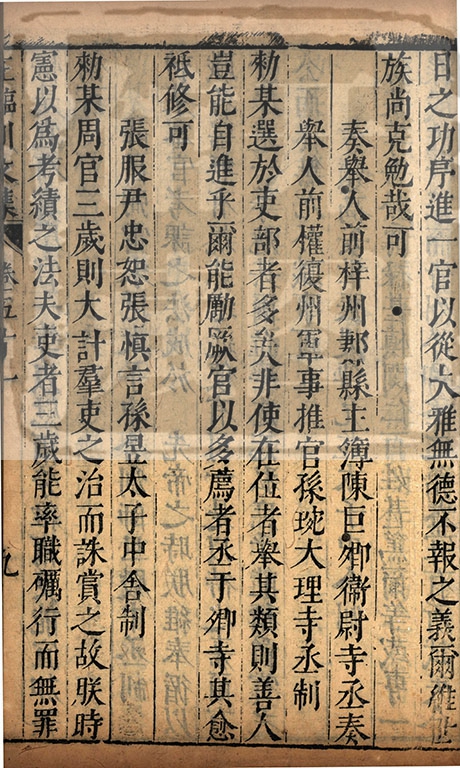 日之功序進一官以從大雅無德不報之義爾維世
族尚克勉哉可
奏舉人前梓州郪縣主簿陳巨卿衞尉寺丞奏
舉人前權復州軍事推官孫琬大理寺丞制
勑某選於吏部者多矣非使在位者舉其類則善人
豈能自進乎爾能勵厥官以多薦者丞于卿寺其愈
祗修可
張服尹忠恕張慎言孫昱太子中舍制
勑某周官三歲則大計羣吏之治而誅賞之故朕時
憲以為考績之法夫吏者三歲能率職礪行而無罪
王臨川文集 卷五十一 九